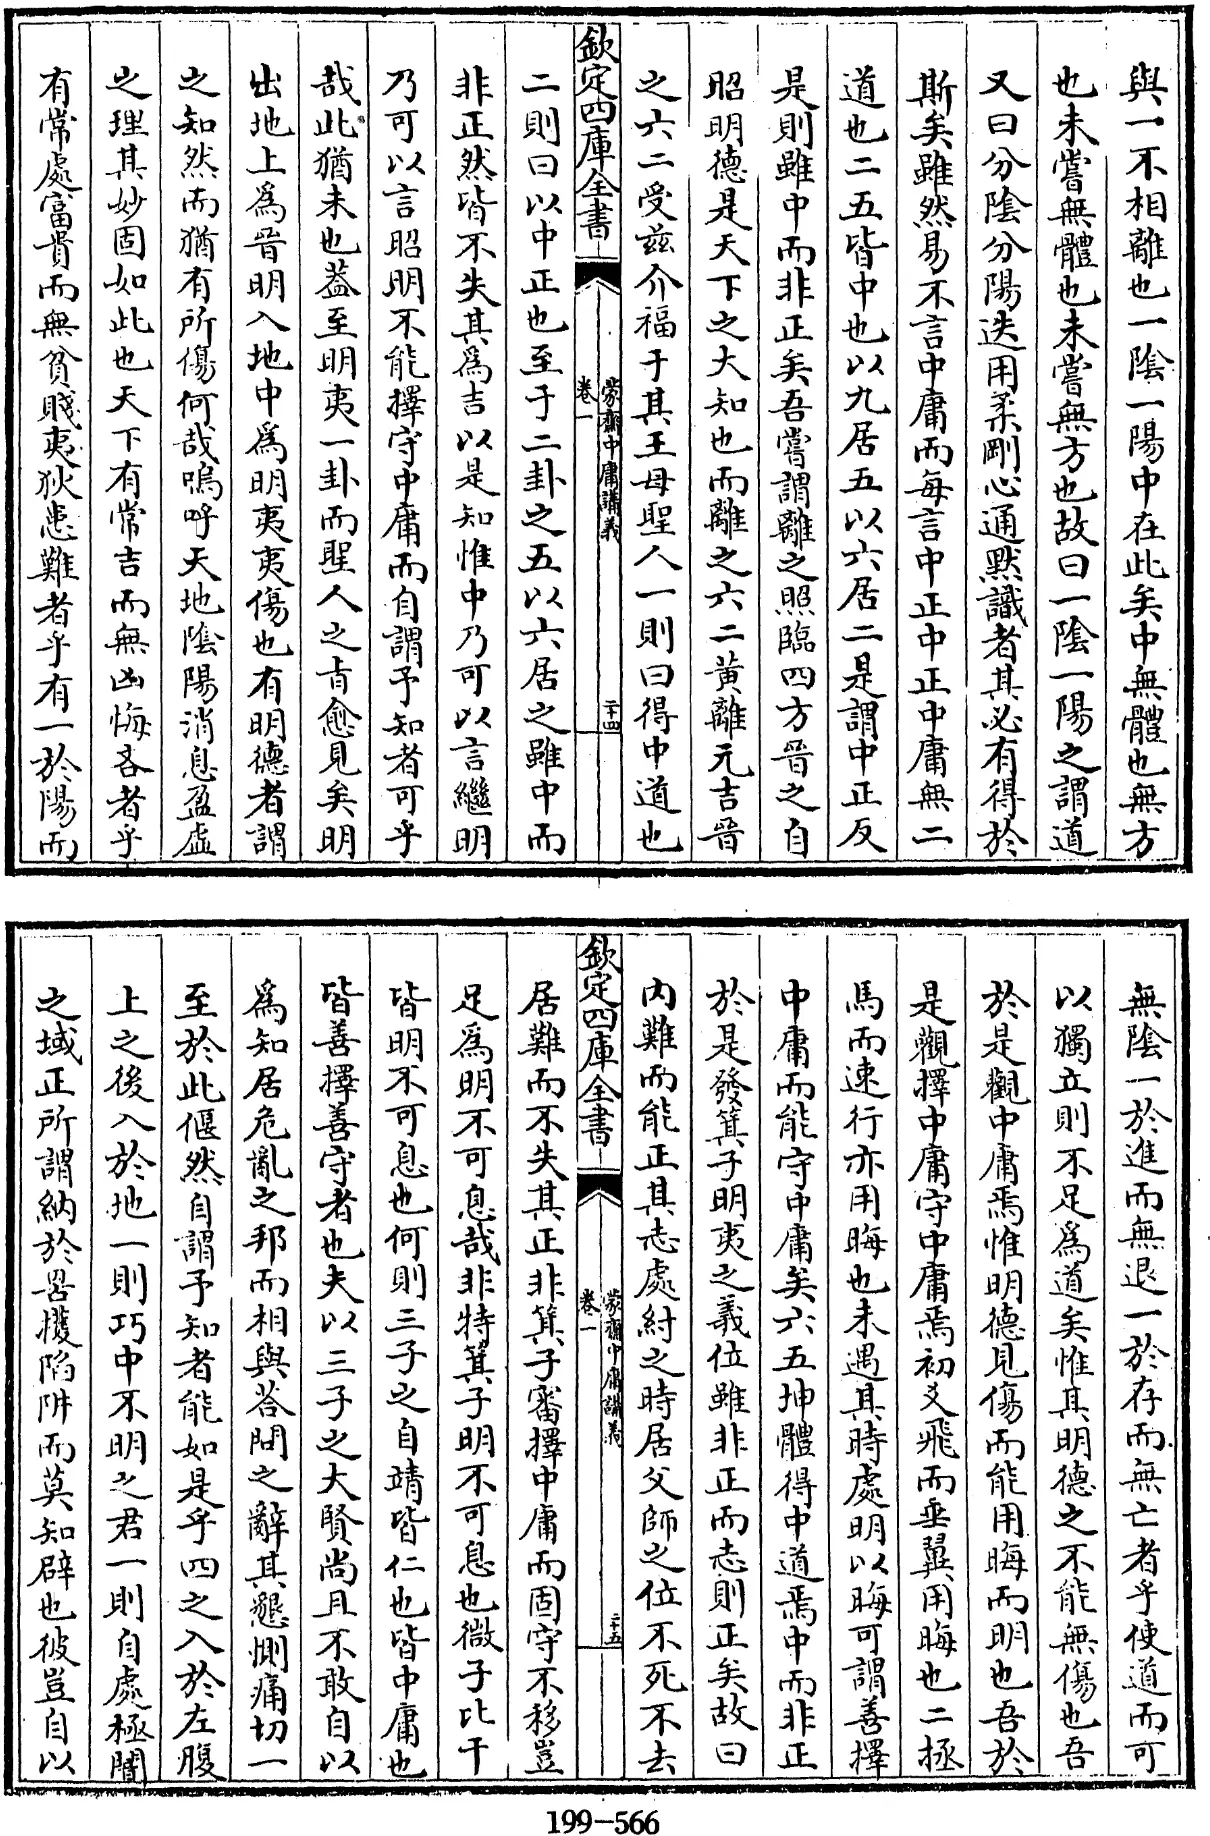 與一不相離也一隂一陽中在此矣中無體也無方
也未嘗無體也未嘗無方也故曰一隂一陽之謂道
又曰分隂分陽迭用柔剛心通黙識者其必有得於
斯矣雖然易不言中庸而每言中正中正中庸無二
道也二五皆中也以九居五以六居二是謂中正反
是則雖中而非正矣吾嘗謂離之照臨四方晉之自
昭明德是天下之大知也而離之六二黄離元吉晉
之六二受兹介福于其王母聖人一則曰得中道也
欽定四庫全書
蒙齋中庸講義
卷一
二十四
二則曰以中正也至于二卦之五以六居之雖中而
非正然皆不失其為吉以是知惟中乃可以言繼明
乃可以言昭明不能擇守中庸而自謂予知者可乎
哉此猶未也葢至明夷一卦而聖人之㫖愈見矣明
出地上為晉明入地中為明夷夷傷也有明德者謂
之知然而猶有所傷何哉嗚呼天地隂陽消息盈虛
之理其妙固如此也天下有常吉而無凶悔吝者乎
有常處富貴而無貧賤夷狄患難者乎有一於陽而
無隂一於進而無退一於存而無亡者乎使道而可
以獨立則不足為道矣惟其明德之不能無傷也吾
於是觀中庸焉惟明德見傷而能用晦而明也吾於
是觀擇中庸守中庸焉初爻飛而垂翼用晦也二拯
馬而速行亦用晦也未遇其時處明以晦可謂善擇
中庸而能守中庸矣六五坤體得中道焉中而非正
於是發箕子明夷之義位雖非正而志則正矣故曰
内難而能正其志處紂之時居父師之位不死不去
欽定四庫全書
蒙齋中庸講義
卷一
二十五
居難而不失其正非箕子審擇中庸而固守不移豈
足為明不可息哉非特箕子明不可息也微子比干
皆明不可息也何則三子之自靖皆仁也皆中庸也
皆善擇善守者也夫以三子之大賢尚且不敢自以
為知居危亂之邦而相與荅問之辭其懇惻痛切一
至於此偃然自謂予知者能如是乎四之入於左腹
上之後入於地一則巧中不明之君一則自處極闇
之域正所謂納於罟擭陷阱而莫知辟也彼豈自以
199-566